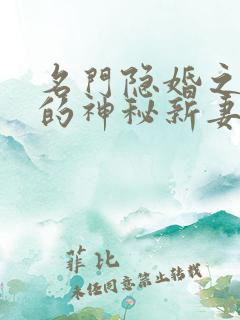 名門隐婚之
的神秘新妻
菲比
未经同意禁止转载